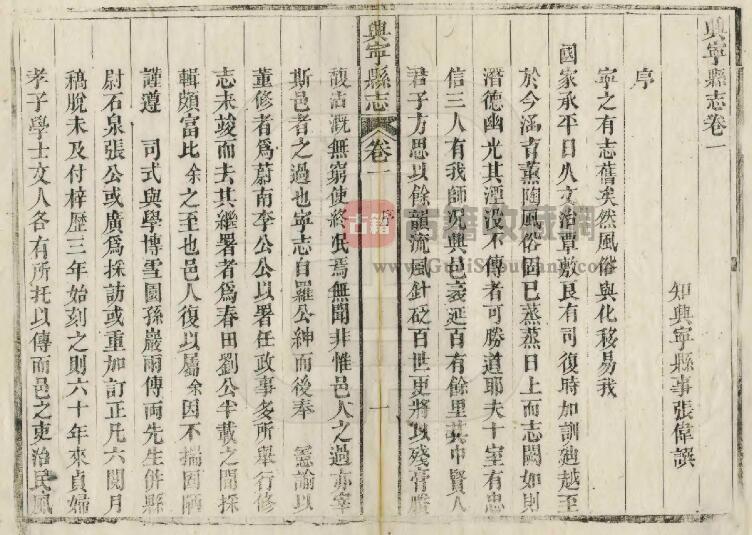 興寧縣志卷一
序
知興寧縣事張偉譔
寧之有志舊矣然風俗與化移易我
國家承平日久文治覃敷良有司復時加訓廸越至
於今涵育薰陶風俗固已蒸蒸日上而志闕如則
潛德幽光其湮没不傳者可勝道耶夫十室有忠
信三人有我師况興邑袤延百有餘里其中賢人
君子方思以餘韻流風針砭百世更將以殘膏賸
興寧縣志
卷一
序
一
馥沾溉無窮使終泯焉無聞非惟邑人之過亦宰
斯邑者之過也寧志自羅公紳而後奉 憲諭以
董修者爲蔚南李公公以署任政事多所舉行修
志未竣而去其繼署者爲春田劉公半載之間採
輯頗富比余之至也邑人復以屬余因不揣固陋
謹遵 司式與學博雪園孫巖雨傅両先生併縣
尉石泉張公或廣爲採訪或重加訂正凡六閱月
稿脱未及付梓歴三年始刻之則六十年來貞婦
孝子學士文人各有所托以傳而邑之吏治民風
古籍收藏網
www.GujiShoucang.com